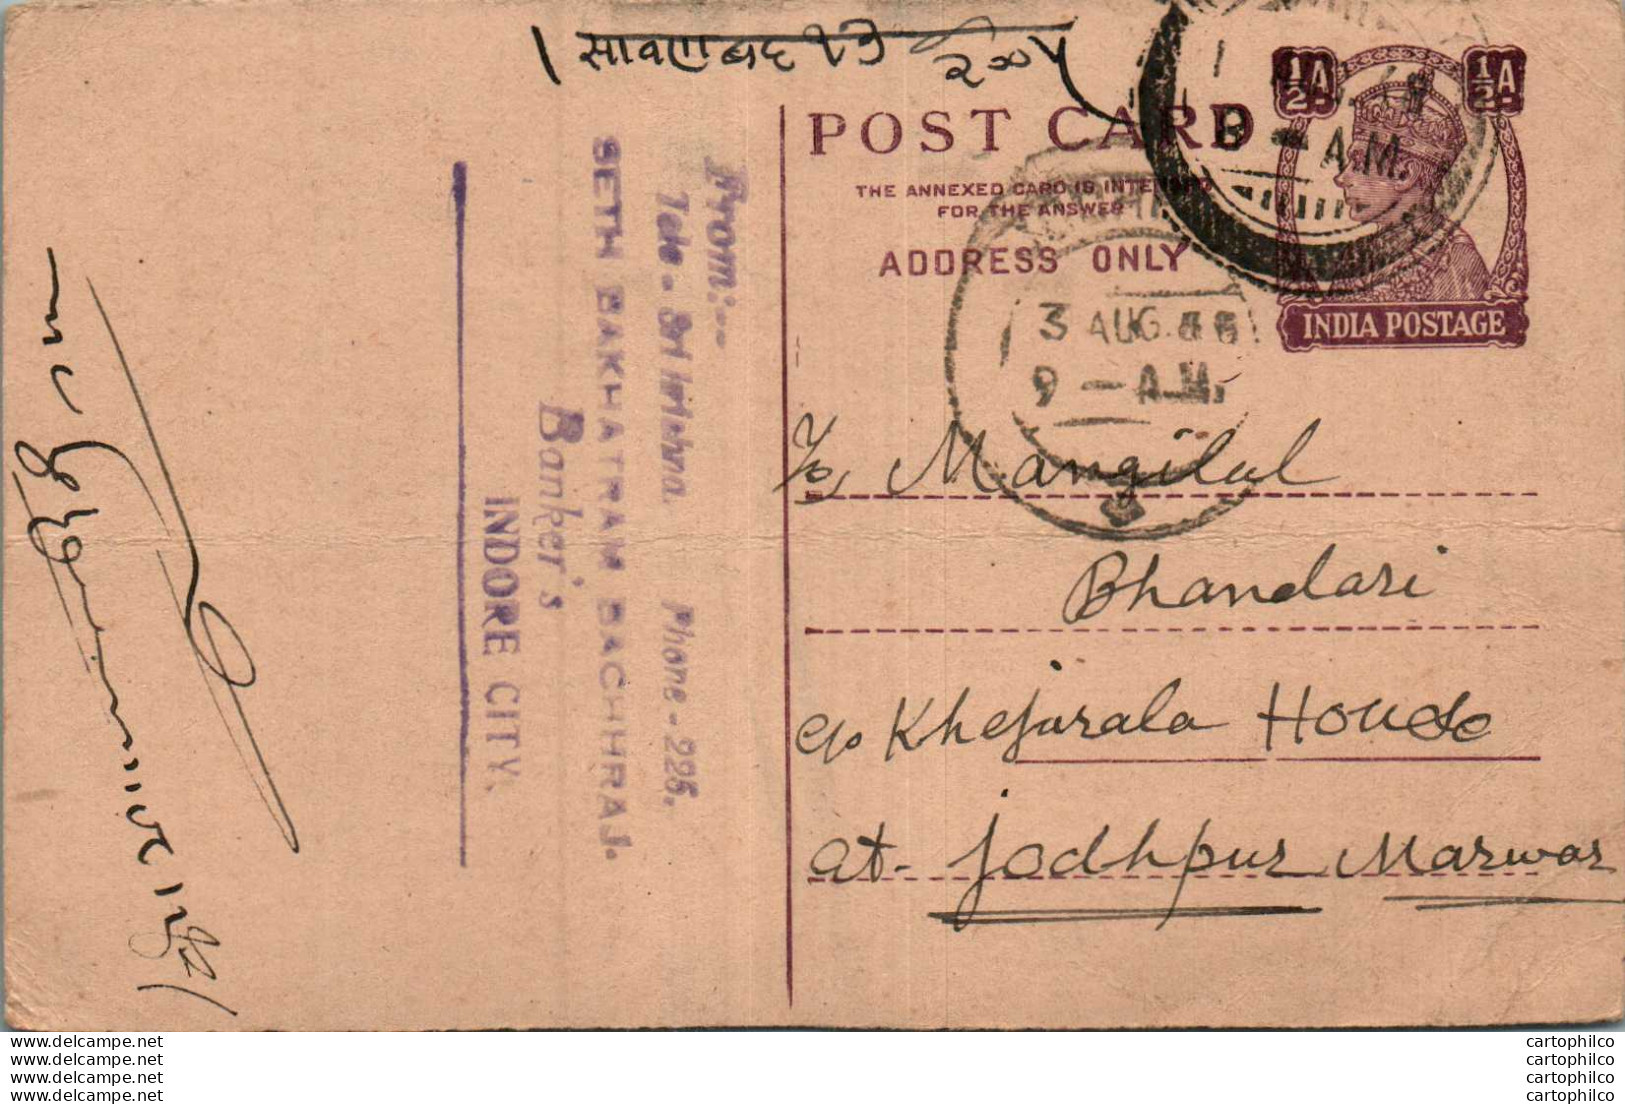 सावण बद १३
२००५
½A ½A
POST CARD
THE ANNEXED CARD IS INTENDED
FOR THE ANSWER
ADDRESS ONLY
INDIA POSTAGE
8 - A.M.
3 AUG.
9 - A.M.
To, Mangilal
Bhandari
c/o Khejarala House
at- Jodhpur Marwar
From:-
Tele - Sri Krishna. Phone - 225.
SETH BAKHATRAM BACHHRAJ.
Banker's
INDORE CITY.
www.delcampe.net
cartophilco
www.delcampe.net
cartophilco
www.delcampe.net
cartophilco
www.delcampe.net
cartophilco